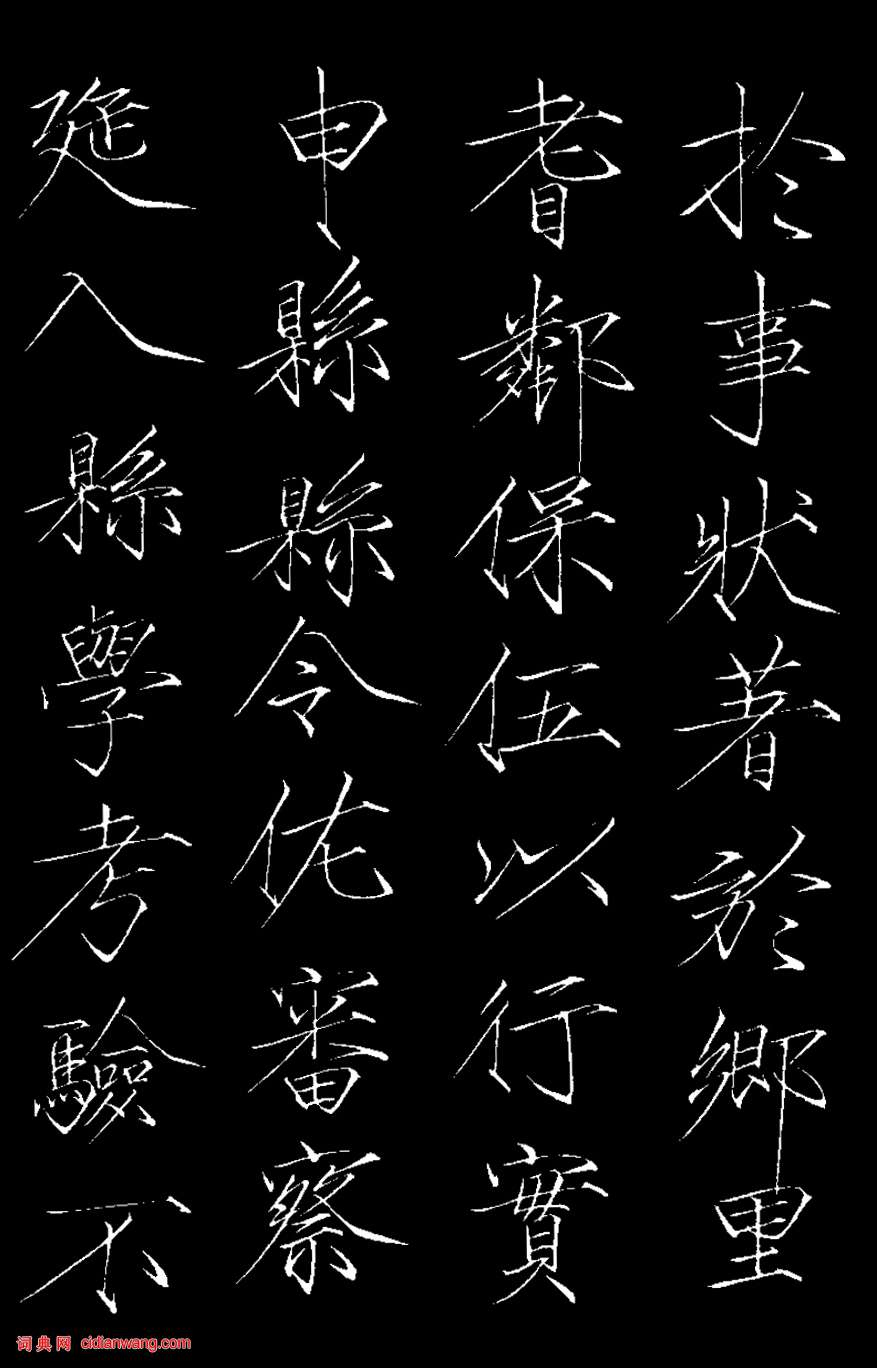 於事狀著於鄉里
耆鄰保伍以行實
申縣縣令佐審察
延入縣學考驗不
词典网 cidianwang.com